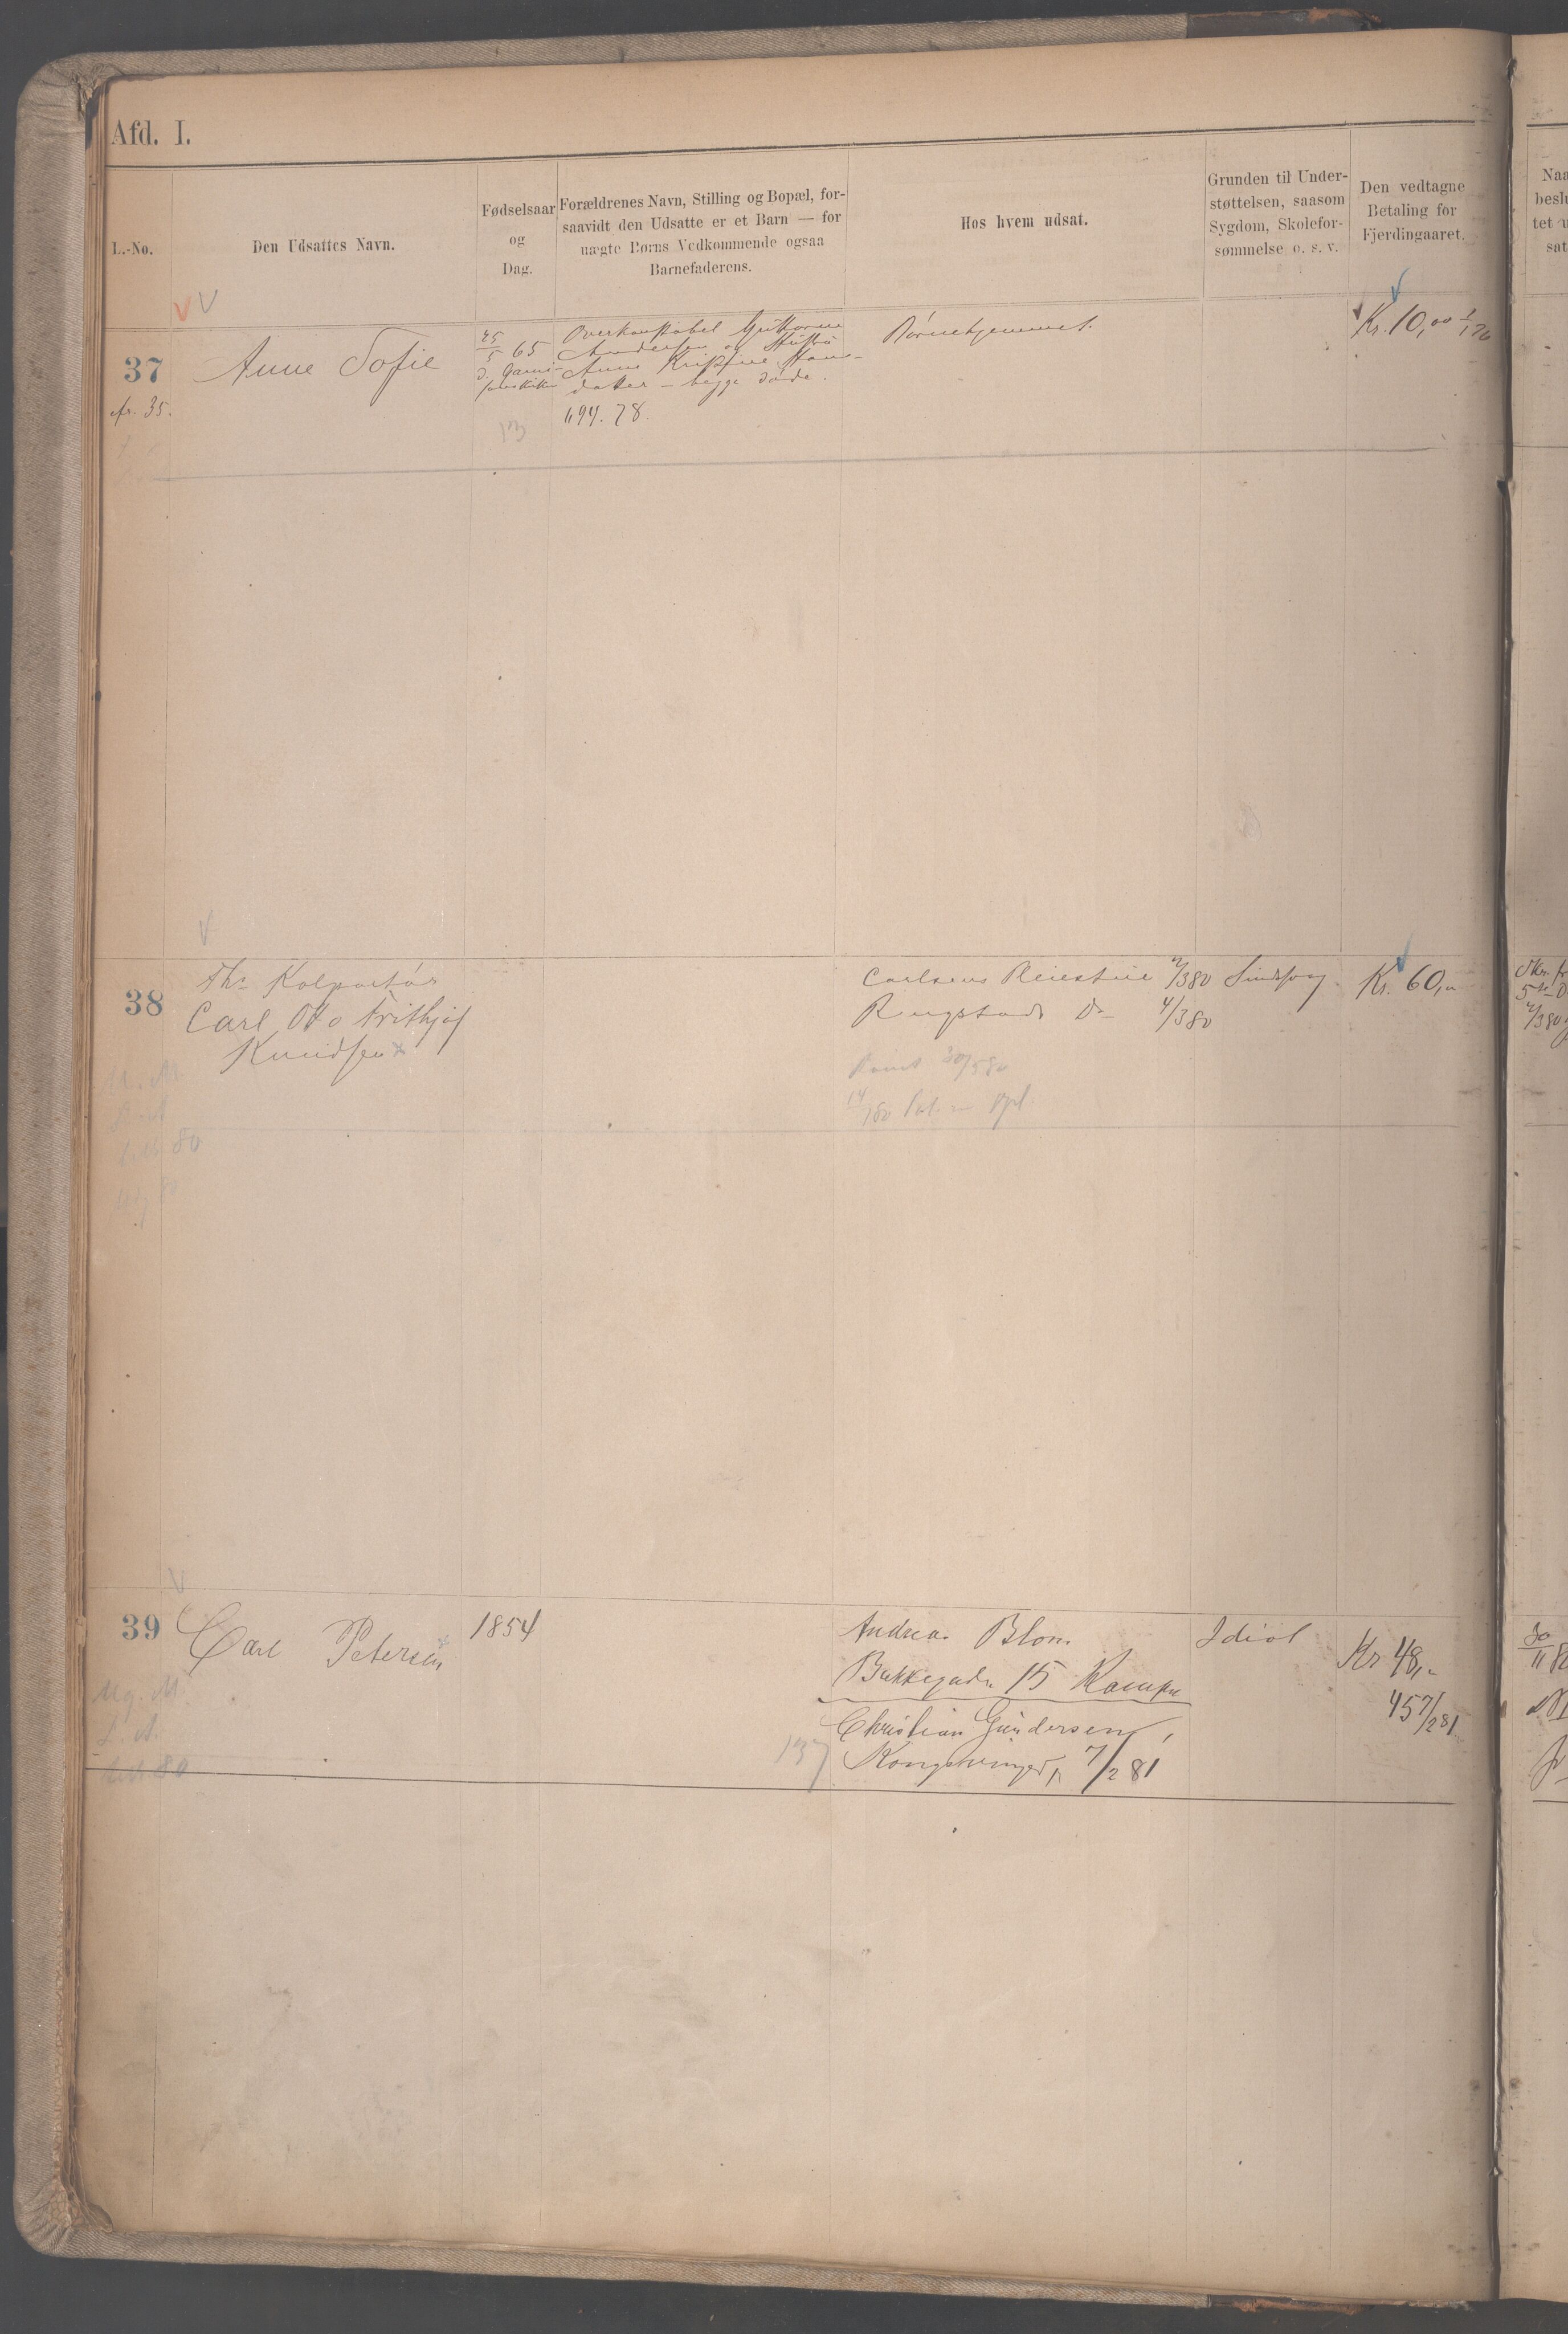 Afd. I.
L.-No.
Den Udsattes Navn.
Fødselsaar
og
Dag.
Forældrenes Navn, Stilling og Bopæl, for-
saavidt den Udsatte er et Barn — for
uægte Børns Vedkommende ogsaa
Barnefaderens.
Hos hvem udsat.
Grunden til Under-
støttelsen, saasom
Sygdom, Skolefor-
sømmelse o. s. v.
Den vedtagne
Betaling for
Fjerdingaaret.
37
fr. 35.
Anne Sofie
25/5 65
Overkonstabel Guttorm
Andersen og Hustru
Anne Kristine Hans-
datter — begge døde.
1194. 78
13
Børnehjemmet.
Kr. 10,00
38
Fhv. Kolportør
Carl Otto Frithjof
Knudsen
80
Carlsens Pleiestue 2/3 80
Ringstads Do 4/3 80
Sindssvag
Kr. 60,"
39
Carl Petersen
1854
Andreas Blom
Bakkegaden 15 Kampen
Christian Gundersen,
Kongsvinger, 7/2 81
137
Idiot
Kr 48,"
45 7/2 81
Ug. M.
80
Naa
beslu
tet u
sat